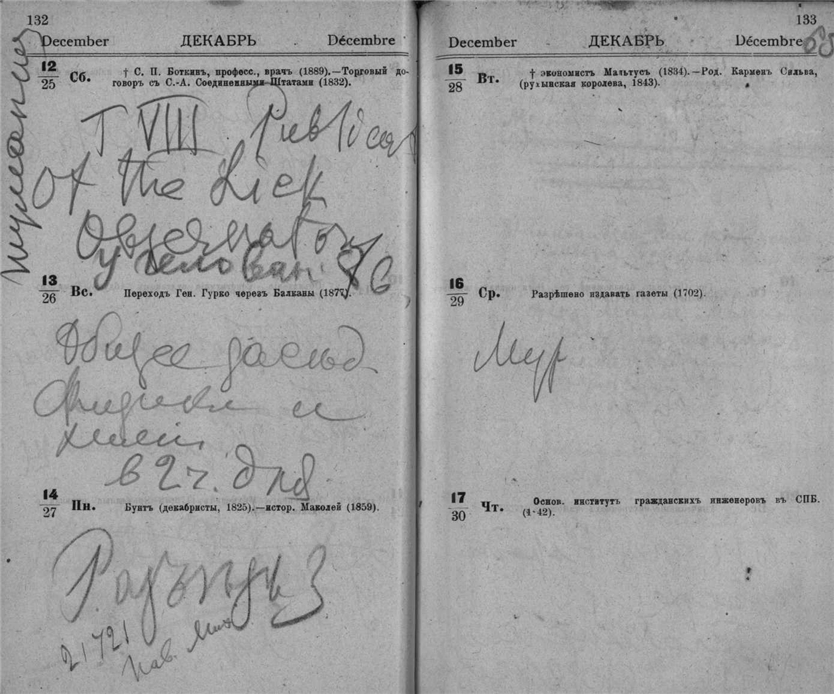 132
December ДЕКАБРЬ Décembre
12
25 Сб. † С. П. Боткинъ, професс., врачъ (1889).—Торговый до-
говоръ съ С.-А. Соединенными Штатами (1832).
T VIII Publicat
of the Lick
Observatory
13
26 Вс. Переходъ Ген. Гурко черезъ Балканы (1877).
Общее засѣд.
физики и
химіи
в 2 ч. дня
14
27 Пн. Бунтъ (декабристы, 1825).—истор. Маколей (1859).
21721
133
December ДЕКАБРЬ Décembre
15
28 Вт. † экономистъ Мальтусъ (1834).—Род. Карменъ Сильва,
(румынская королева, 1843).
16
29 Ср. Разрѣшено издавать газеты (1702).
17
30 Чт. Основ. институтъ гражданскихъ инженеровъ въ СПБ.